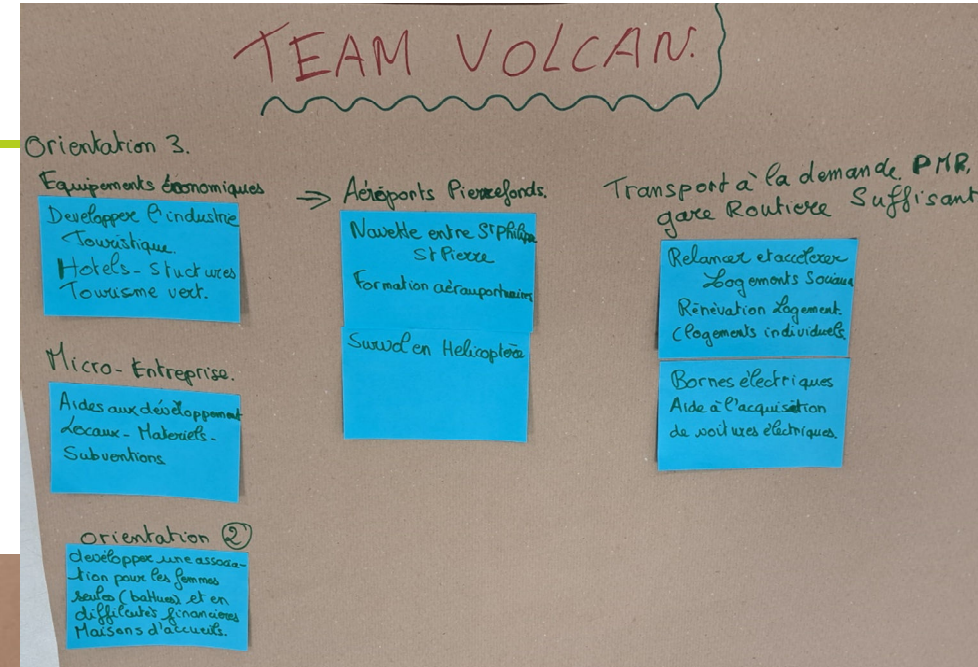 TEAM VOLCAN.
Orientation 3.
Equipements économiques
Developper l'industrie
Touristique.
Hotels - Stuctures
Tourisme vert.
Micro-Entreprise.
Aides aux développement
Locaux - Materiels -
Subventions
orientation 2
developper une associa-
tion pour les femmes
seules (battues) et en
difficultés financieres
Maisons d'accueils.
⇒ Aéroports Pierrefonds.
Navette entre St Philippe
St Pierre
Formation aérauportuaires
Survol en Helicoptère
Transport à la demande. PMR.
gare Routiere Suffisant
Relancer et accelerer
Logements Sociaux
Rénèvation Logement.
(logements individuels
Bornes électriques
Aide à l'acquisition
de voitures électriques.